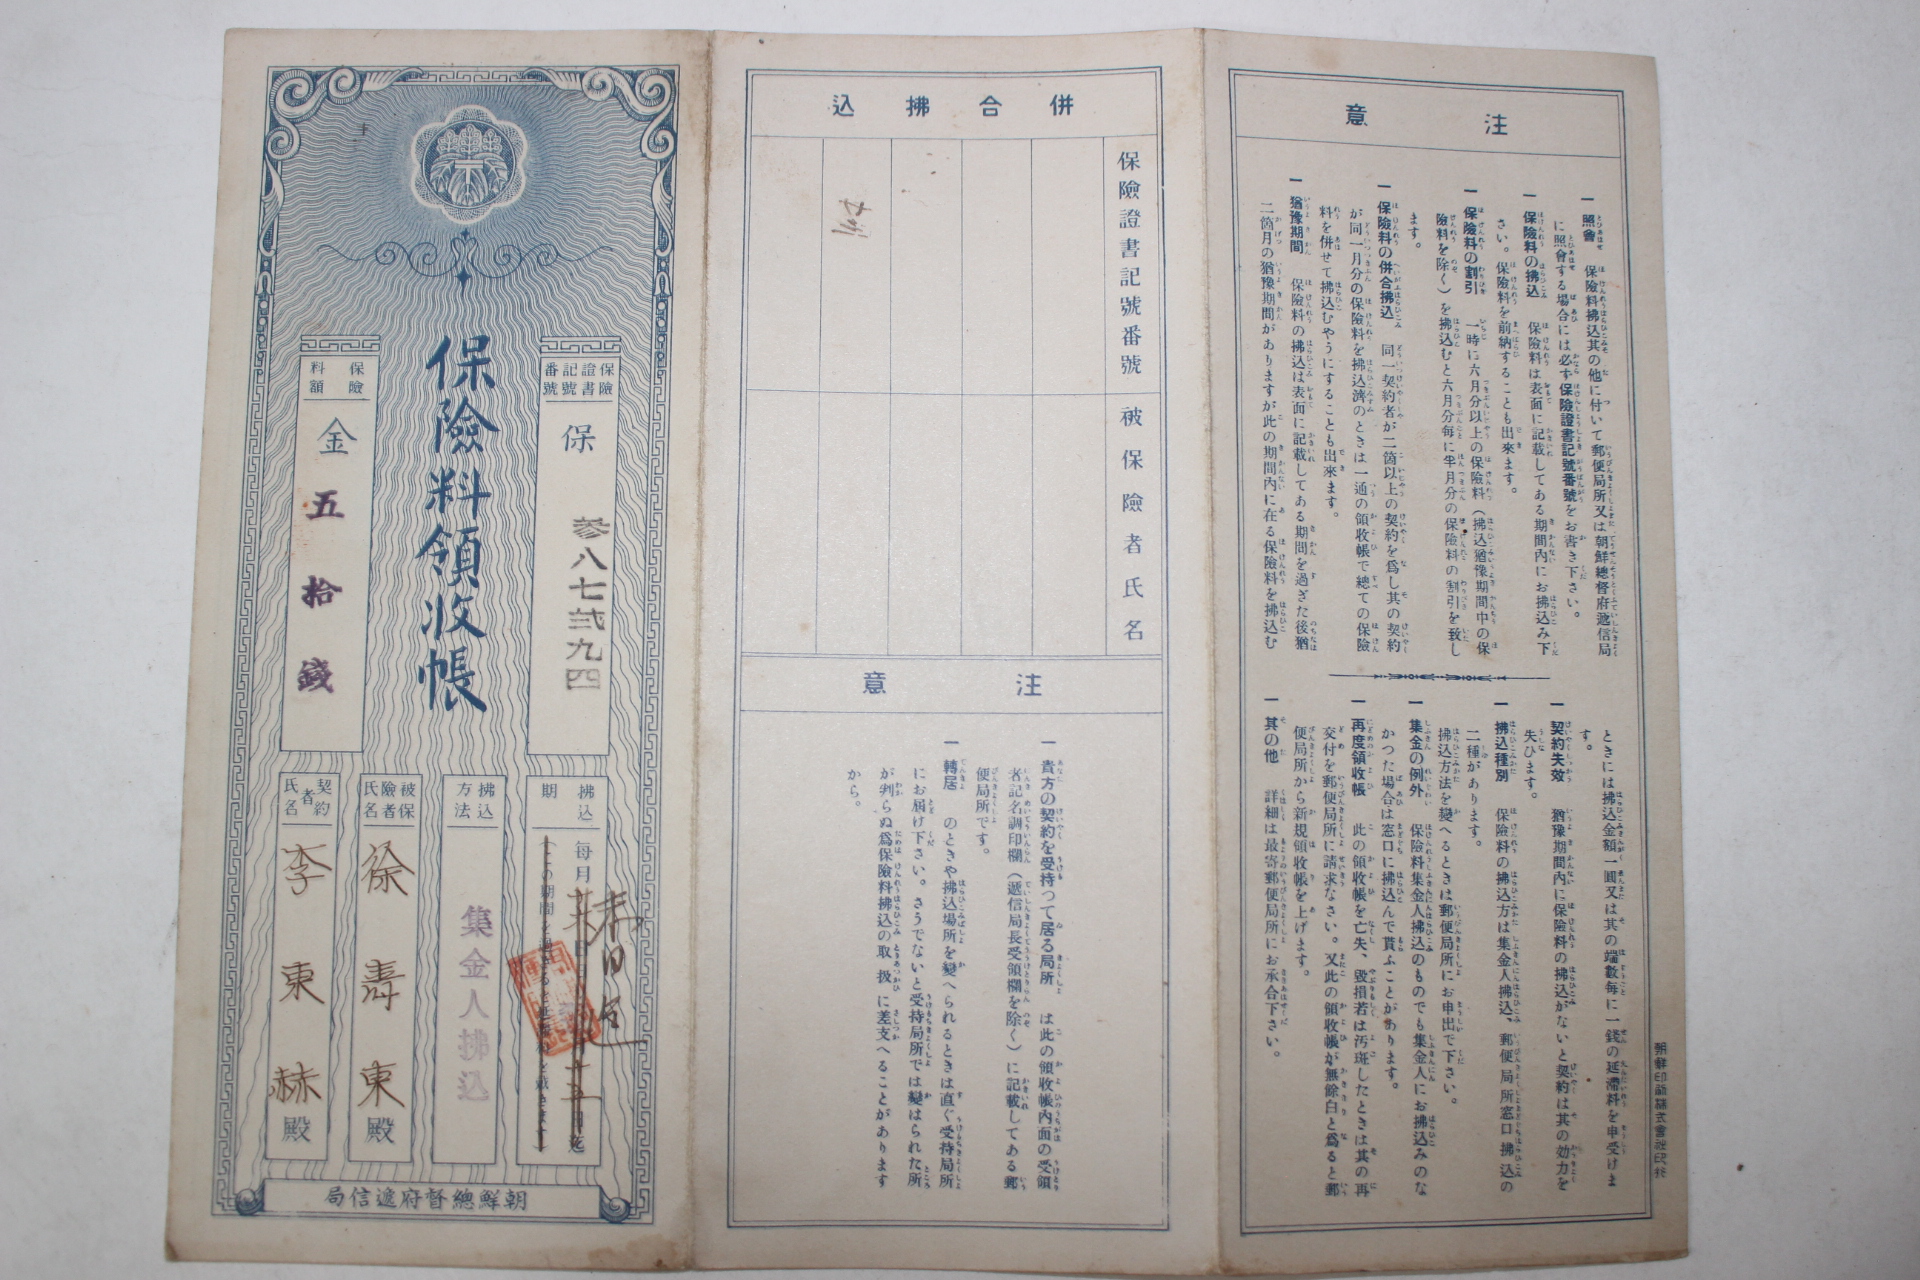 保險料領收帳
保險證書記號番號
保 參八七貳九四
保險料額
金五拾錢
拂込期
每月
拂込方法
集金人拂込
被保險者氏名
徐壽東殿
契約者氏名
李東赫殿
朝鮮總督府遞信局
併合拂込
保險證書記號番號
被保險者氏名
注意
一 貴方の契約を受持つて居る局所 は此の領收帳內面の受領
者記名調印欄（遞信局長受領欄を除く）に記載してある郵
便局所です。
一 轉居 のときや拂込場所を變へられるときは直ぐ受持局所
にお屆け下さい。さうでないと受持局所では變はられた所
が判らぬ爲保險料拂込の取扱に差支へることがあります
から。
注意
一 照會 保險料拂込其の他に付いて郵便局所又は朝鮮總督府遞信局
に照會する場合には必ず保險證書記號番號をお書き下さい。
一 保險料の拂込 保險料は表面に記載してある期間內にお拂込み下
さい。保險料を前納することも出來ます。
一 保險料の割引 一時に六月分以上の保險料（拂込猶豫期間中の保
險料を除く）を拂込むと六月分每に半月分の保險料の割引を致し
ます。
一 保險料の併合拂込 同一契約者が二箇以上の契約を爲し其の契約
が同一月分の保險料を拂込濟のときは一通の領收帳で總ての保險
料を併せて拂込むやうにすることも出來ます。
一 猶豫期間 保險料の拂込は表面に記載してある期間を過ぎた後猶
二箇月の猶豫期間がありますが此の期間內に在る保險料を拂込む
ときには拂込金額一圓又は其の端數每に一錢の延滯料を申受けま
す。
一 契約失效 猶豫期間內に保險料の拂込がないと契約は其の効力を
失ひます。
一 拂込種別 保險料の拂込方は集金人拂込、郵便局所窓口拂込の
二種があります。
拂込方法を變へるときは郵便局所にお申出で下さい。
一 集金の例外 保險料集金人拂込のものでも集金人にお拂込みのな
かつた場合は窓口に拂込んで貰ふことがあります。
一 再度領收帳 此の領收帳を亡失、毀損若は汚斑したときは其の再
交付を郵便局所に請求なさい。又此の領收帳が無餘白と爲ると郵
便局所から新規領收帳を上げます。
一 其の他 詳細は最寄郵便局所にお承合下さい。
朝鮮印刷株式會社印行